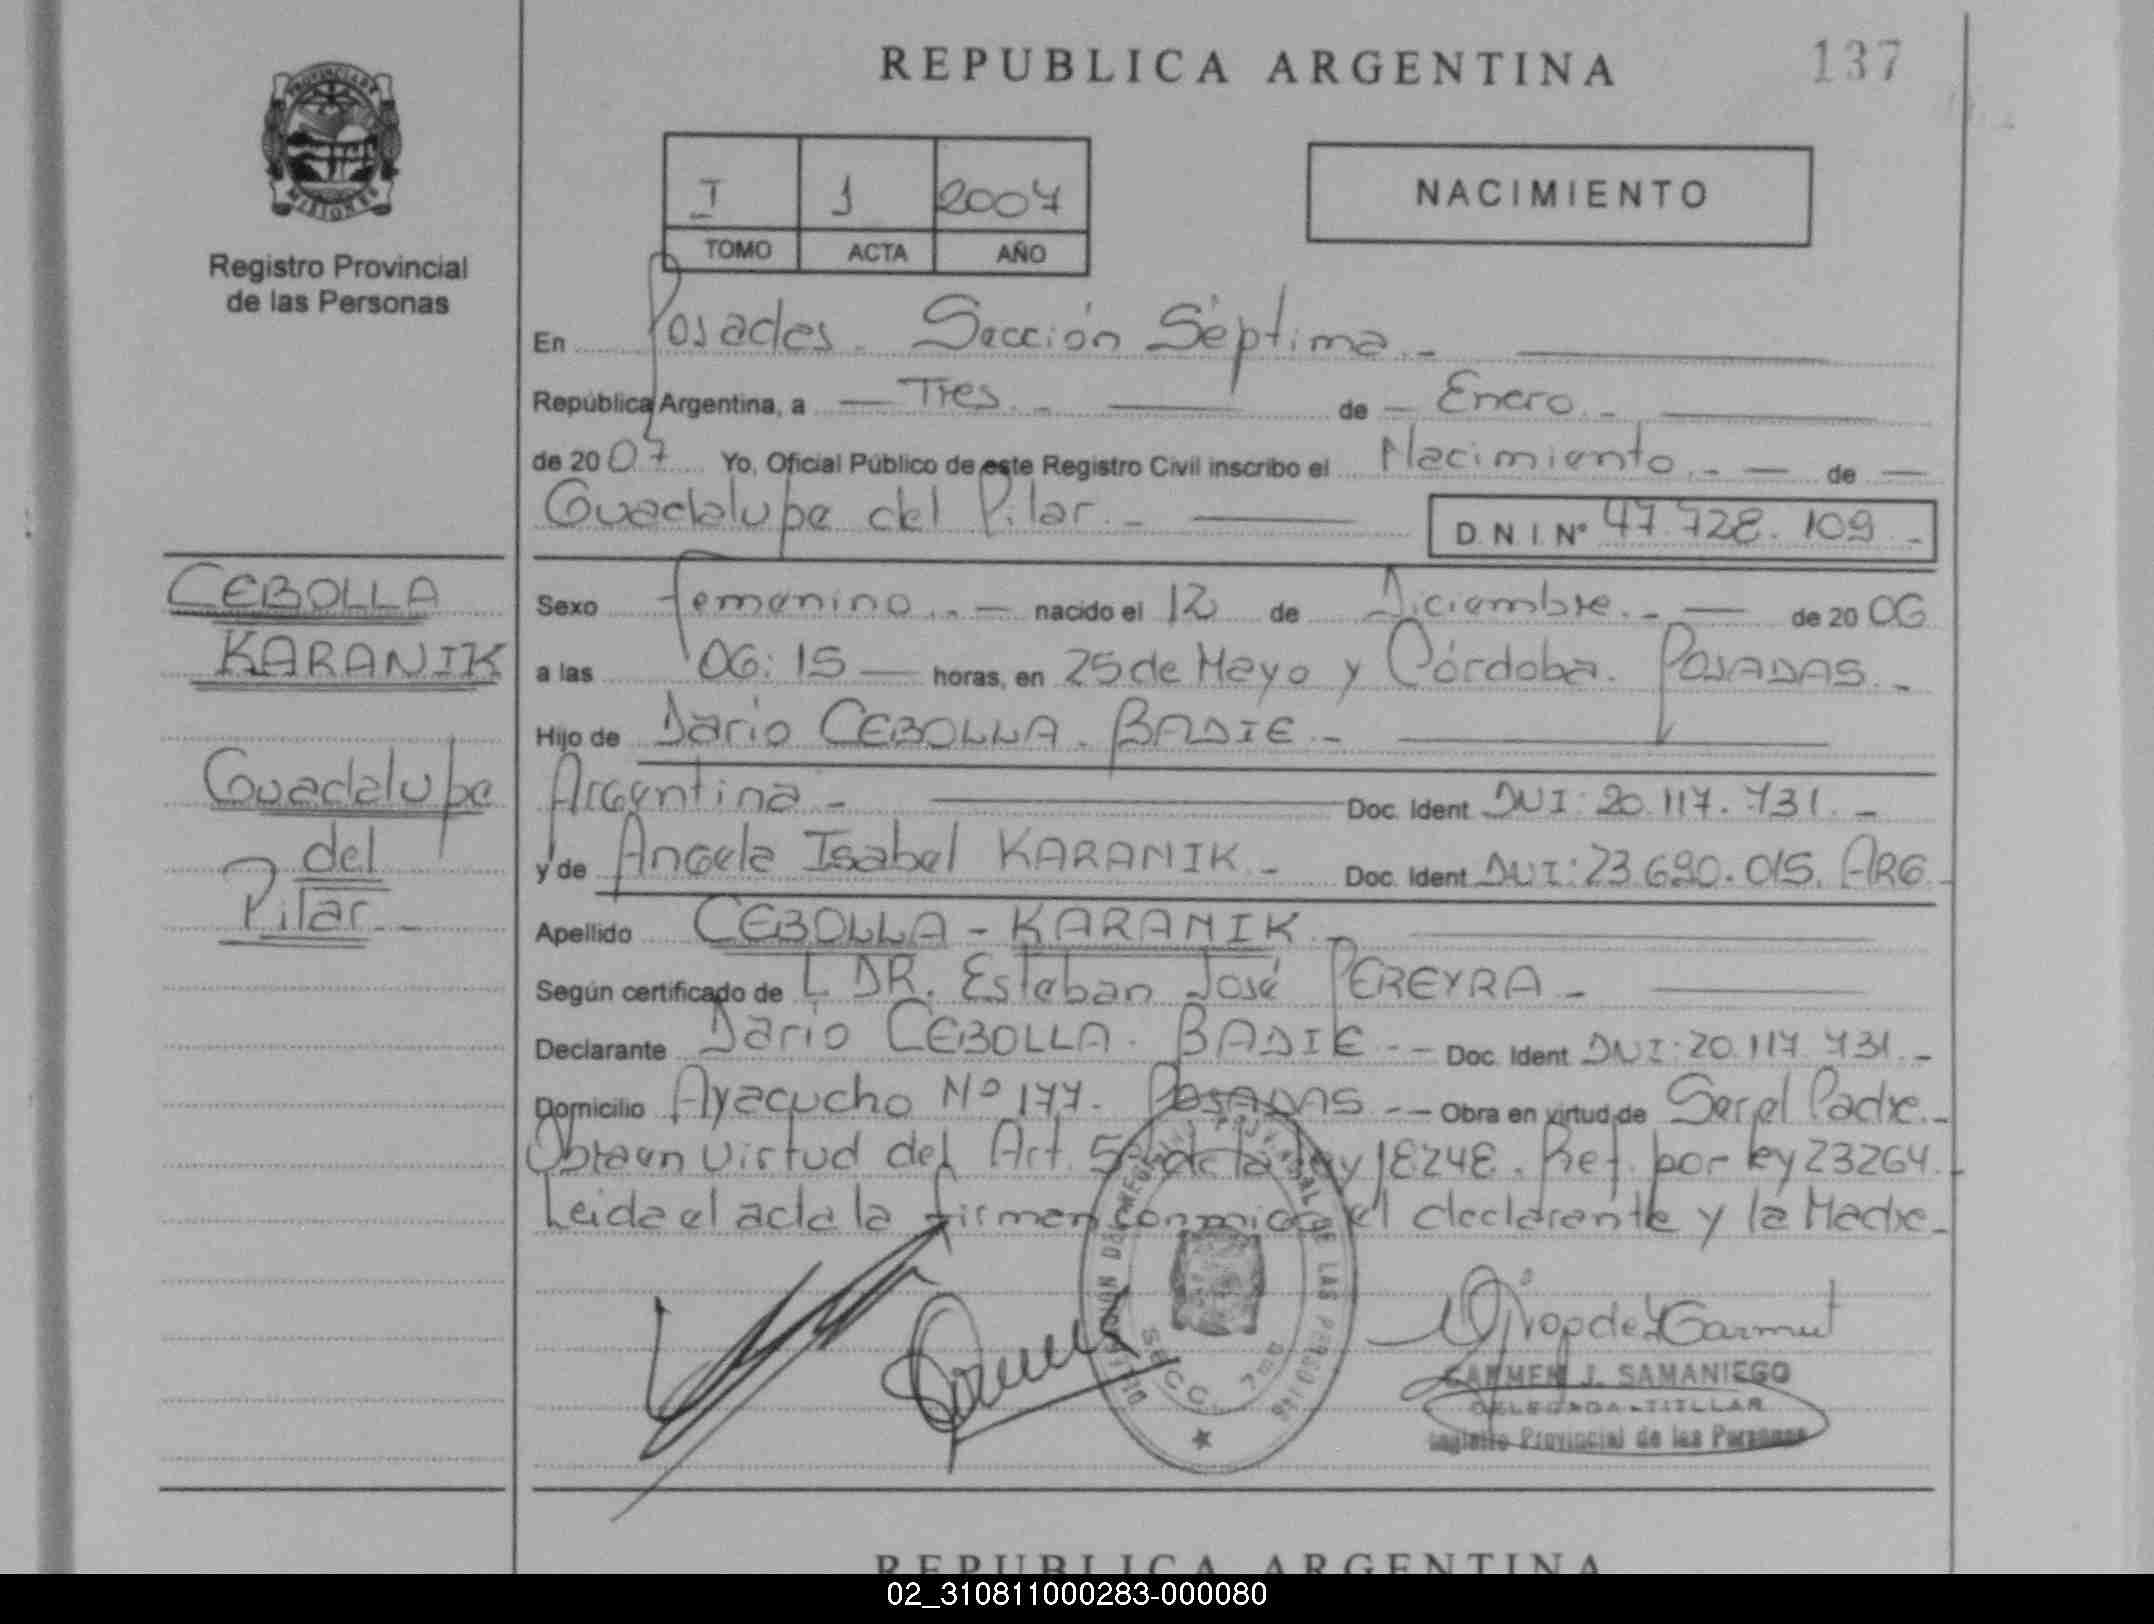 REPUBLICA ARGENTINA
137
PROVINCIA DE
MISIONES
Registro Provincial
de las Personas
I 1 2007
TOMO ACTA AÑO
NACIMIENTO
En Posadas. Sección Séptima.-
República Argentina, a — Tres.- de — Enero.-
de 2007 Yo, Oficial Público de este Registro Civil inscribo el Nacimiento.- — de —
Guadalupe del Pilar.- D.N.I. Nº 47.728.109.-
CEBOLLA
KARANIK
Guadalupe
del
Pilar.-
Sexo femenino.- — nacido el 12 de Diciembre.- — de 2006
a las 06:15 — horas, en 25 de Mayo y Córdoba. POSADAS.-
Hijo de Dario CEBOLLA. BADIE.-
Argentina.- Doc. Ident DNI: 20.117.731.-
y de Angela Isabel KARANIK.- Doc. Ident DNI: 23.690.015. ARG.-
Apellido CEBOLLA - KARANIK.-
Según certificado de L DR. Esteban José PEREYRA.-
Declarante Dario CEBOLLA. BADIE.-- Doc. Ident DNI: 20.117.731.-
Domicilio Ayacucho Nº 177. POSADAS.-- Obra en virtud de Ser el Padre.-
Obra en virtud del Art. 5º de la ley 18248. Ref. por ley 23264.-
Leida el acta la firman conmigo el declarante y la Madre.-
DE LAS PERSONAS
SECC. 7ma
CARMEN J. SAMANIEGO
DELEGADA TITULAR
Registro Provincial de las Personas
REPUBLICA ARGENTINA
02_310811000283-000080